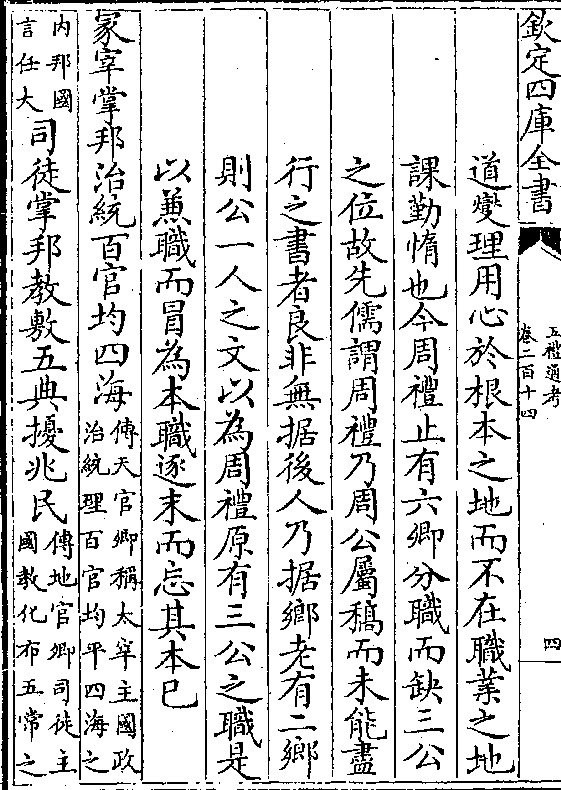 欽定四庫全書
五禮通考
卷二百十四
四
道燮理用心於根本之地而不在職業之地
課勤惰也今周禮止有六卿分職而缺三公
之位故先儒謂周禮乃周公屬稿而未能盡
行之書者良非無据後人乃据鄉老有二鄉
則公一人之文以為周禮原有三公之職是
以兼職而冒為本職逐末而忘其本已
冢宰掌邦治統百官均四海傳天官卿稱太宰主國政
治統理百官均平四海之
內邦國
言任大司徒掌邦教敷五典擾兆民傳地官卿司徒主
國教化布五常之